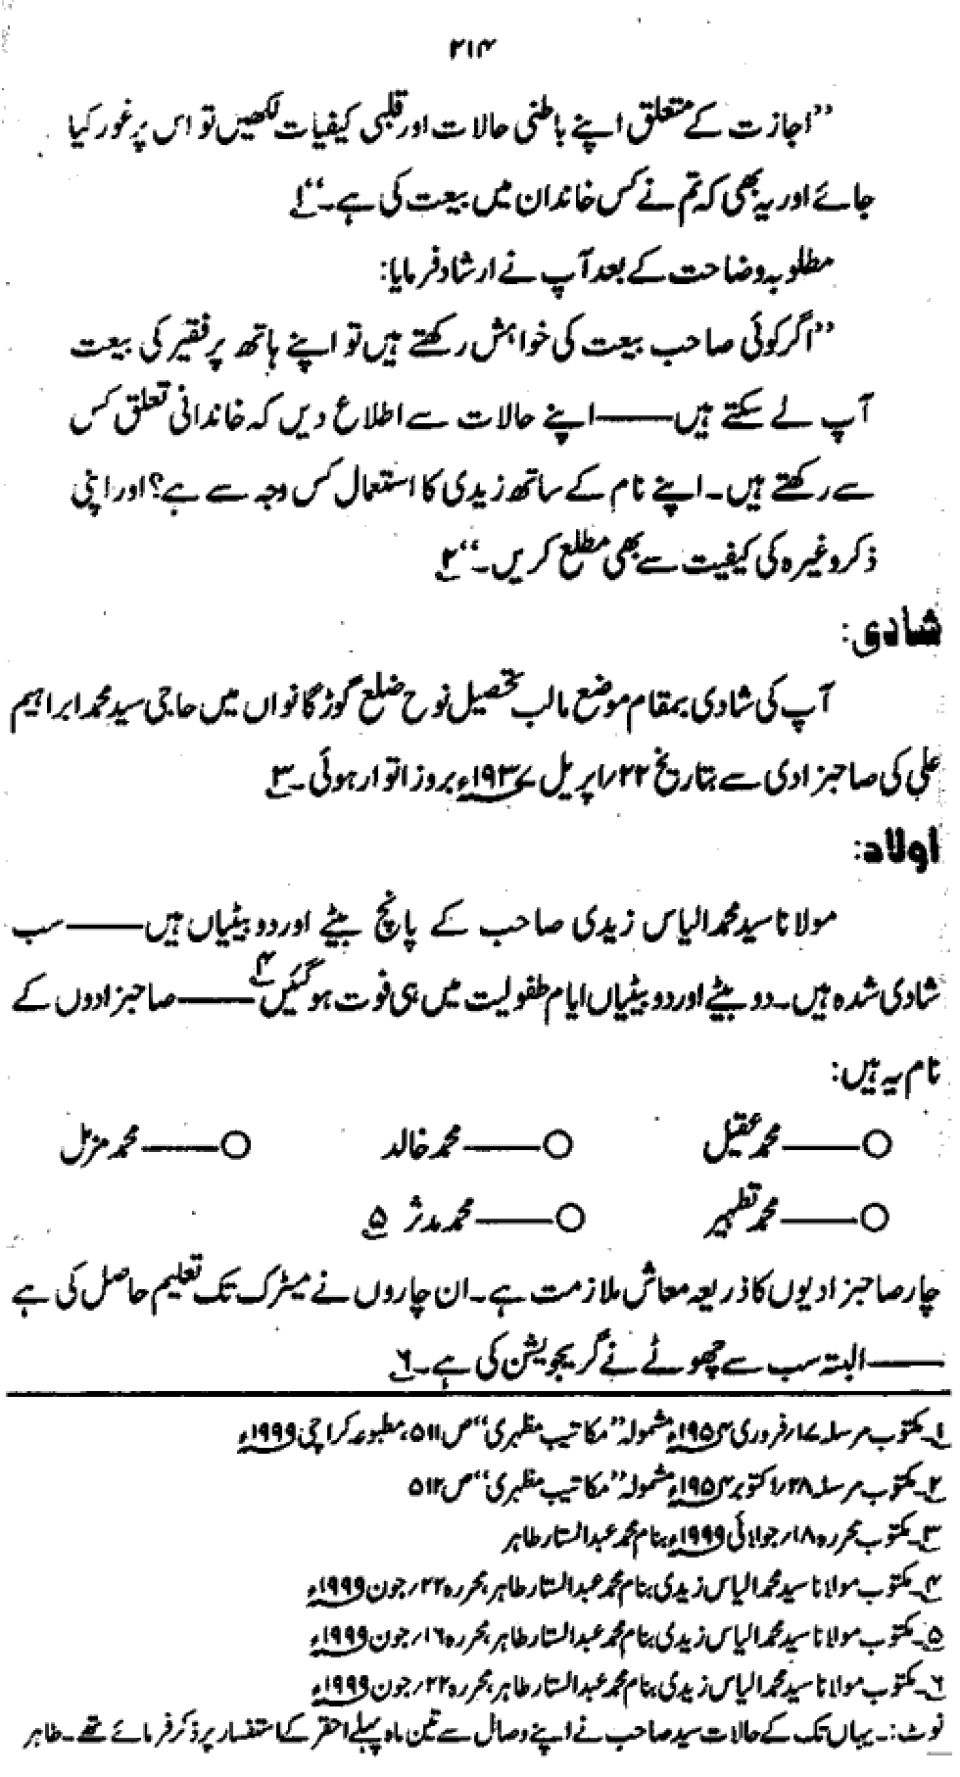 ۲۱۴
”اجازت کے متعلق اپنے باطنی حالات اور قلبی کیفیات لکھیں تو اس پر غور کیا
جائے اور یہ بھی کہ تم نے کس خاندان میں بیعت کی ہے۔“۱
مطلوبہ وضاحت کے بعد آپ نے ارشاد فرمایا:
”اگر کوئی صاحب بیعت کی خواہش رکھتے ہیں تو اپنے ہاتھ پر فقیر کی بیعت
آپ لے سکتے ہیں——اپنے حالات سے اطلاع دیں کہ خاندانی تعلق کس
سے رکھتے ہیں۔ اپنے نام کے ساتھ زیدی کا استعمال کس وجہ سے ہے؟ اور اپنی
ذکر وغیرہ کی کیفیت سے بھی مطلع کریں۔“۲
شادی:
آپ کی شادی بمقام موضع مالب تحصیل نوح ضلع گوڑگانواں میں حاجی سید محمد ابراہیم
علی کی صاحبزادی سے بتاریخ ۲۲/اپریل ۱۹۳۷ء بروز اتوار ہوئی۔۳
اولاد:
مولانا سید محمد الیاس زیدی صاحب کے پانچ بیٹے اور دو بیٹیاں ہیں——سب
شادی شدہ ہیں۔ دو بیٹے اور دو بیٹیاں ایام طفولیت میں ہی فوت ہوگئیں۴——صاحبزادوں کے
نام یہ ہیں:
○——محمد عقیل ○——محمد خالد ○——محمد مزمل
○——محمد تطہیر ○——محمد مدثر ۵
چار صاحبزادیوں کا ذریعہ معاش ملازمت ہے۔ ان چاروں نے میٹرک تک تعلیم حاصل کی ہے
——البتہ سب سے چھوٹے نے گریجویشن کی ہے۔۶
۱۔ مکتوب مرسلہ ۱۷/فروری ۱۹۵۴ء مشمولہ ”مکاتیب مظہری“ ص ۵۱۱، مطبوعہ کراچی ۱۹۹۹ء
۲۔ مکتوب مرسلہ ۲۸/اکتوبر ۱۹۵۴ء مشمولہ ”مکاتیب مظہری“ ص ۵۱۲
۳۔ مکتوب محررہ ۱۸/جولائی ۱۹۹۹ء بنام محمد عبدالستار طاہر
۴۔ مکتوب مولانا سید محمد الیاس زیدی بنام محمد عبدالستار طاہر، محررہ ۲۲/جون ۱۹۹۹ء
۵۔ مکتوب مولانا سید محمد الیاس زیدی بنام محمد عبدالستار طاہر، محررہ ۱۶/جون ۱۹۹۹ء
۶۔ مکتوب مولانا سید محمد الیاس زیدی بنام محمد عبدالستار طاہر، محررہ ۲۲/جون ۱۹۹۹ء
نوٹ:۔ یہاں تک کے حالات سید صاحب نے اپنے وصال سے تین ماہ پہلے احقر کے استفسار پر ذکر فرمائے تھے۔ طاہر